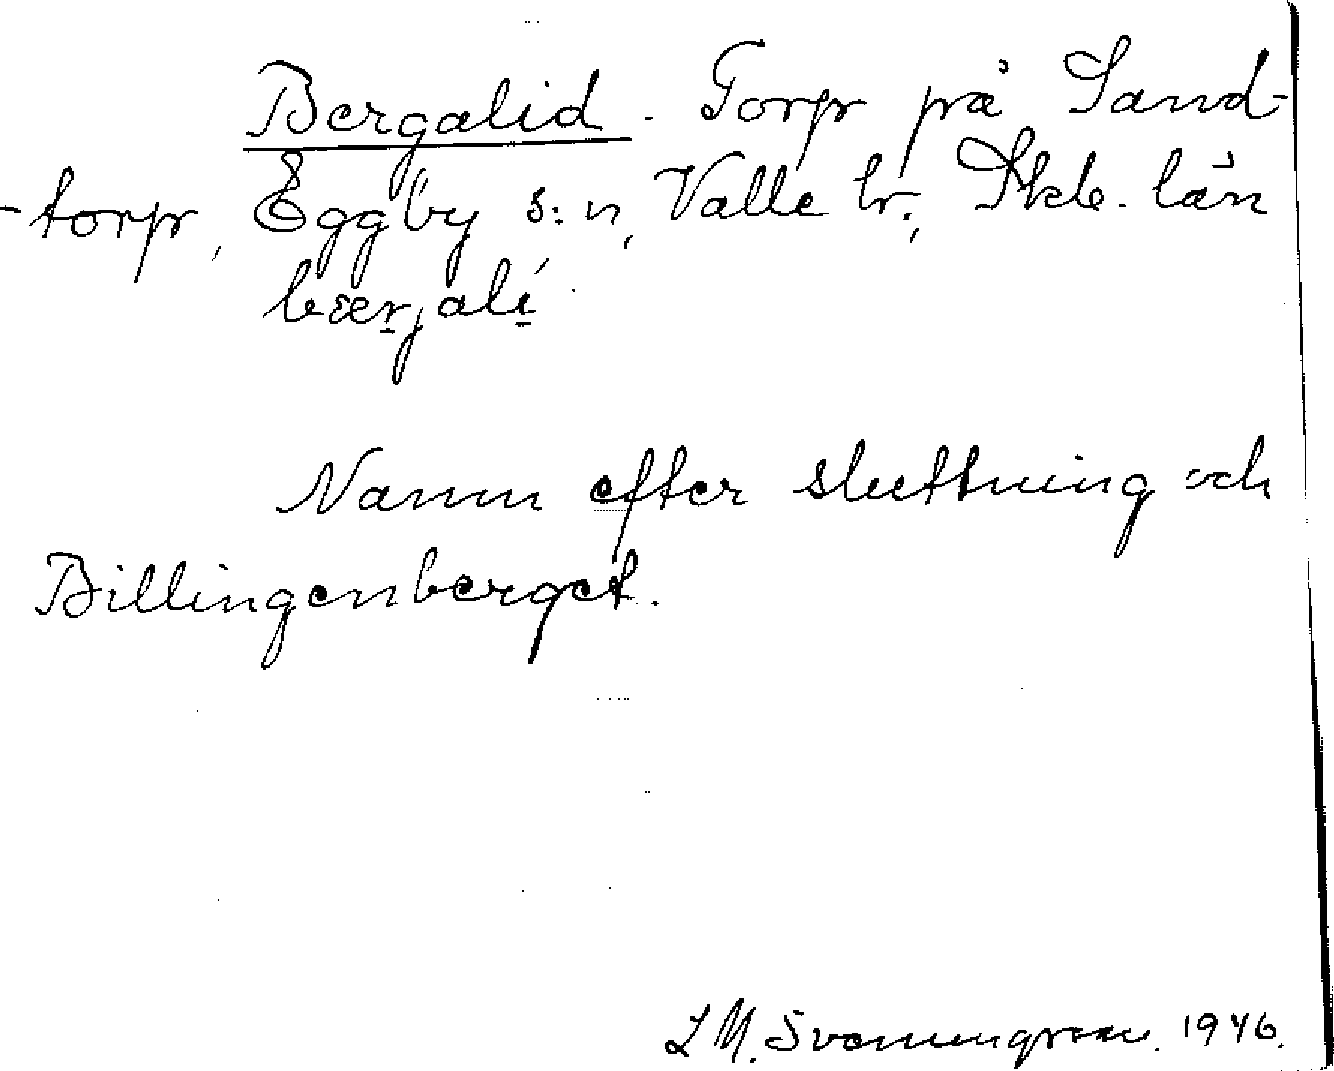 Bergalid. Torp på Sand-
-torp, Eggby s:n, Valle hr., Skb. län
bærjalí
Namn efter sluttning och
Billingenberget.
L M. Svanungsson. 1946.